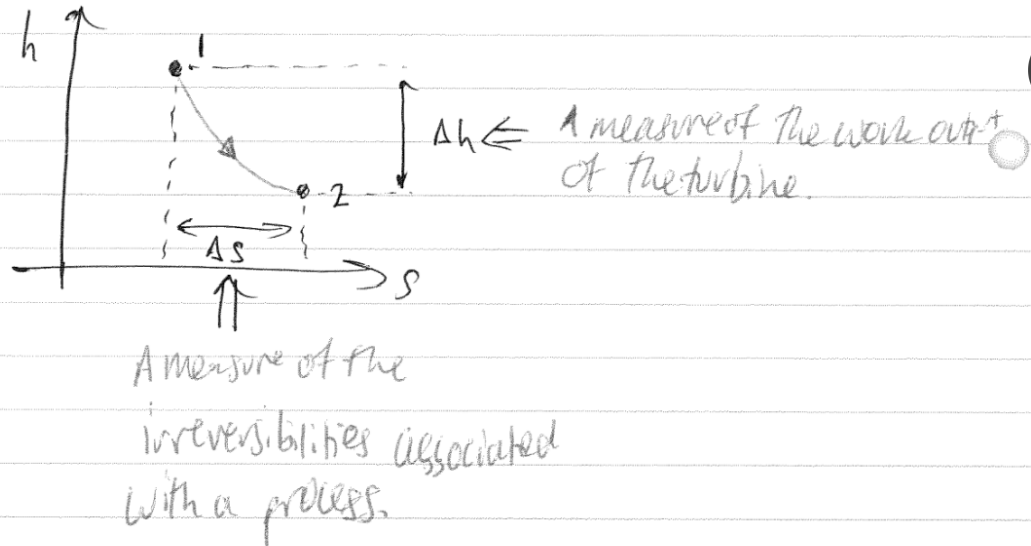 h
1
Δh ⇐ A measure of the work output
of the turbine.
2
ΔS
S
A measure of the
irreversibilities associated
with a process.